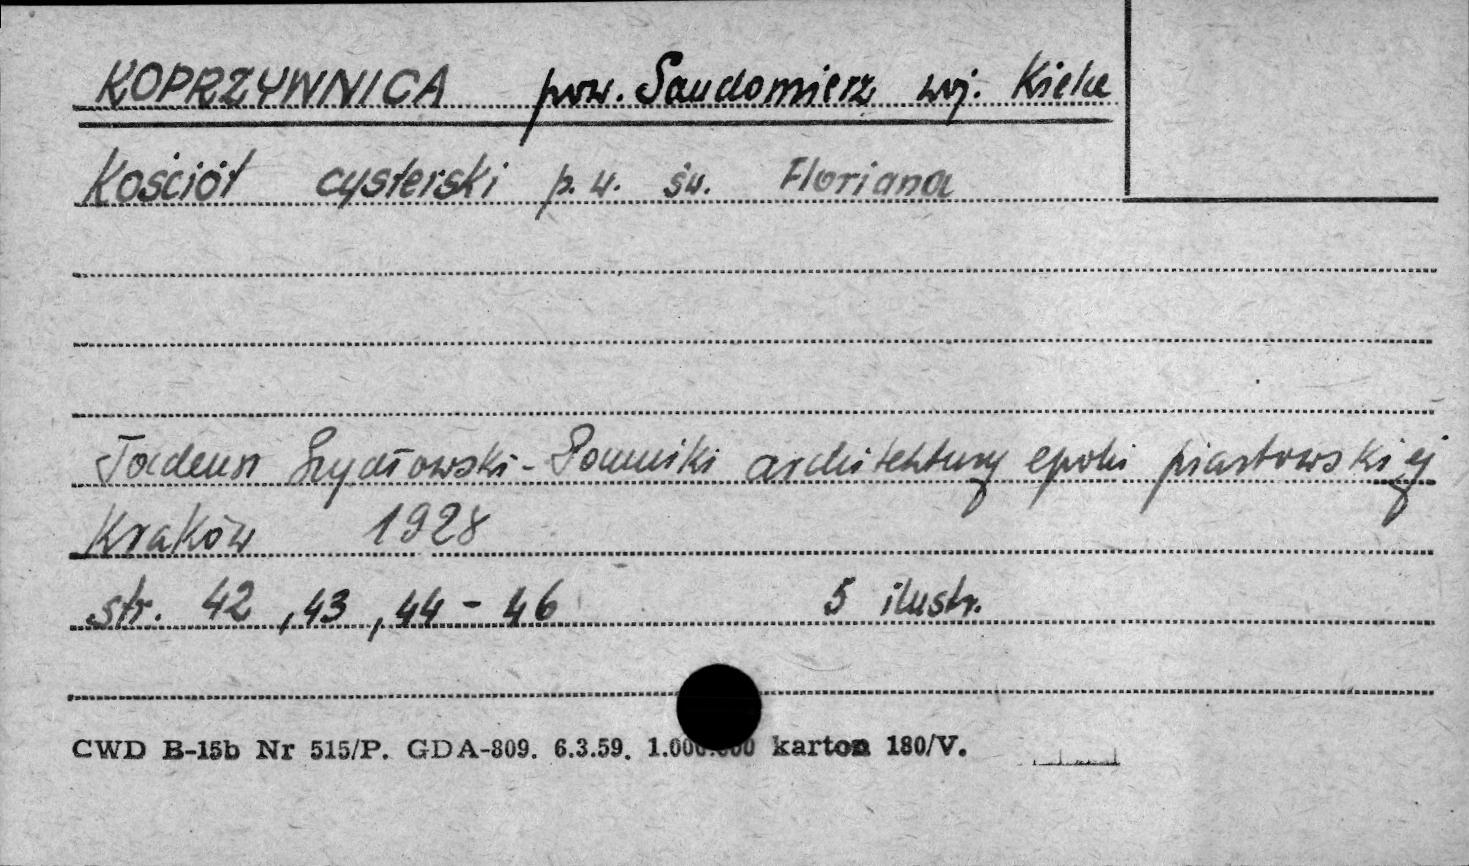 KOPRZYWNICA pow. Sandomierz woj. Kielce
Kościół cysterski p.w. św. Floriana
Tadeusz Szydłowski - Pomniki architektury epoki piastowskiej
Kraków 1928
str. 42, 43, 44 - 46 5 ilustr.
CWD B-15b Nr 515/P. GDA-809. 6.3.59. 1.000.000 karton 180/V.